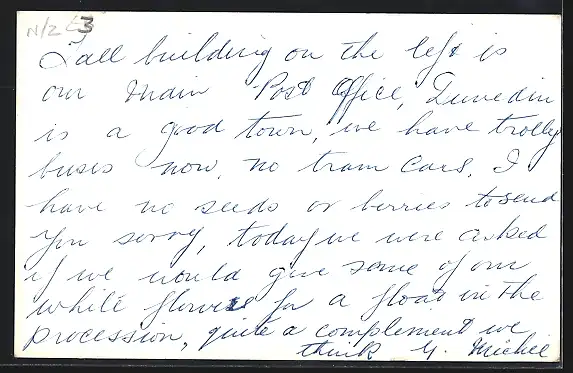 N/Z £3
Tall building on the left is
our Main Post Office, Dunedin
is a good town, we have trolly
buses now, no tram cars, I
have no seeds or berries to send
you sorry, today we were asked
if we would give some of our
while flowers for a float in the
procession, quite a complement we
think G. Michel